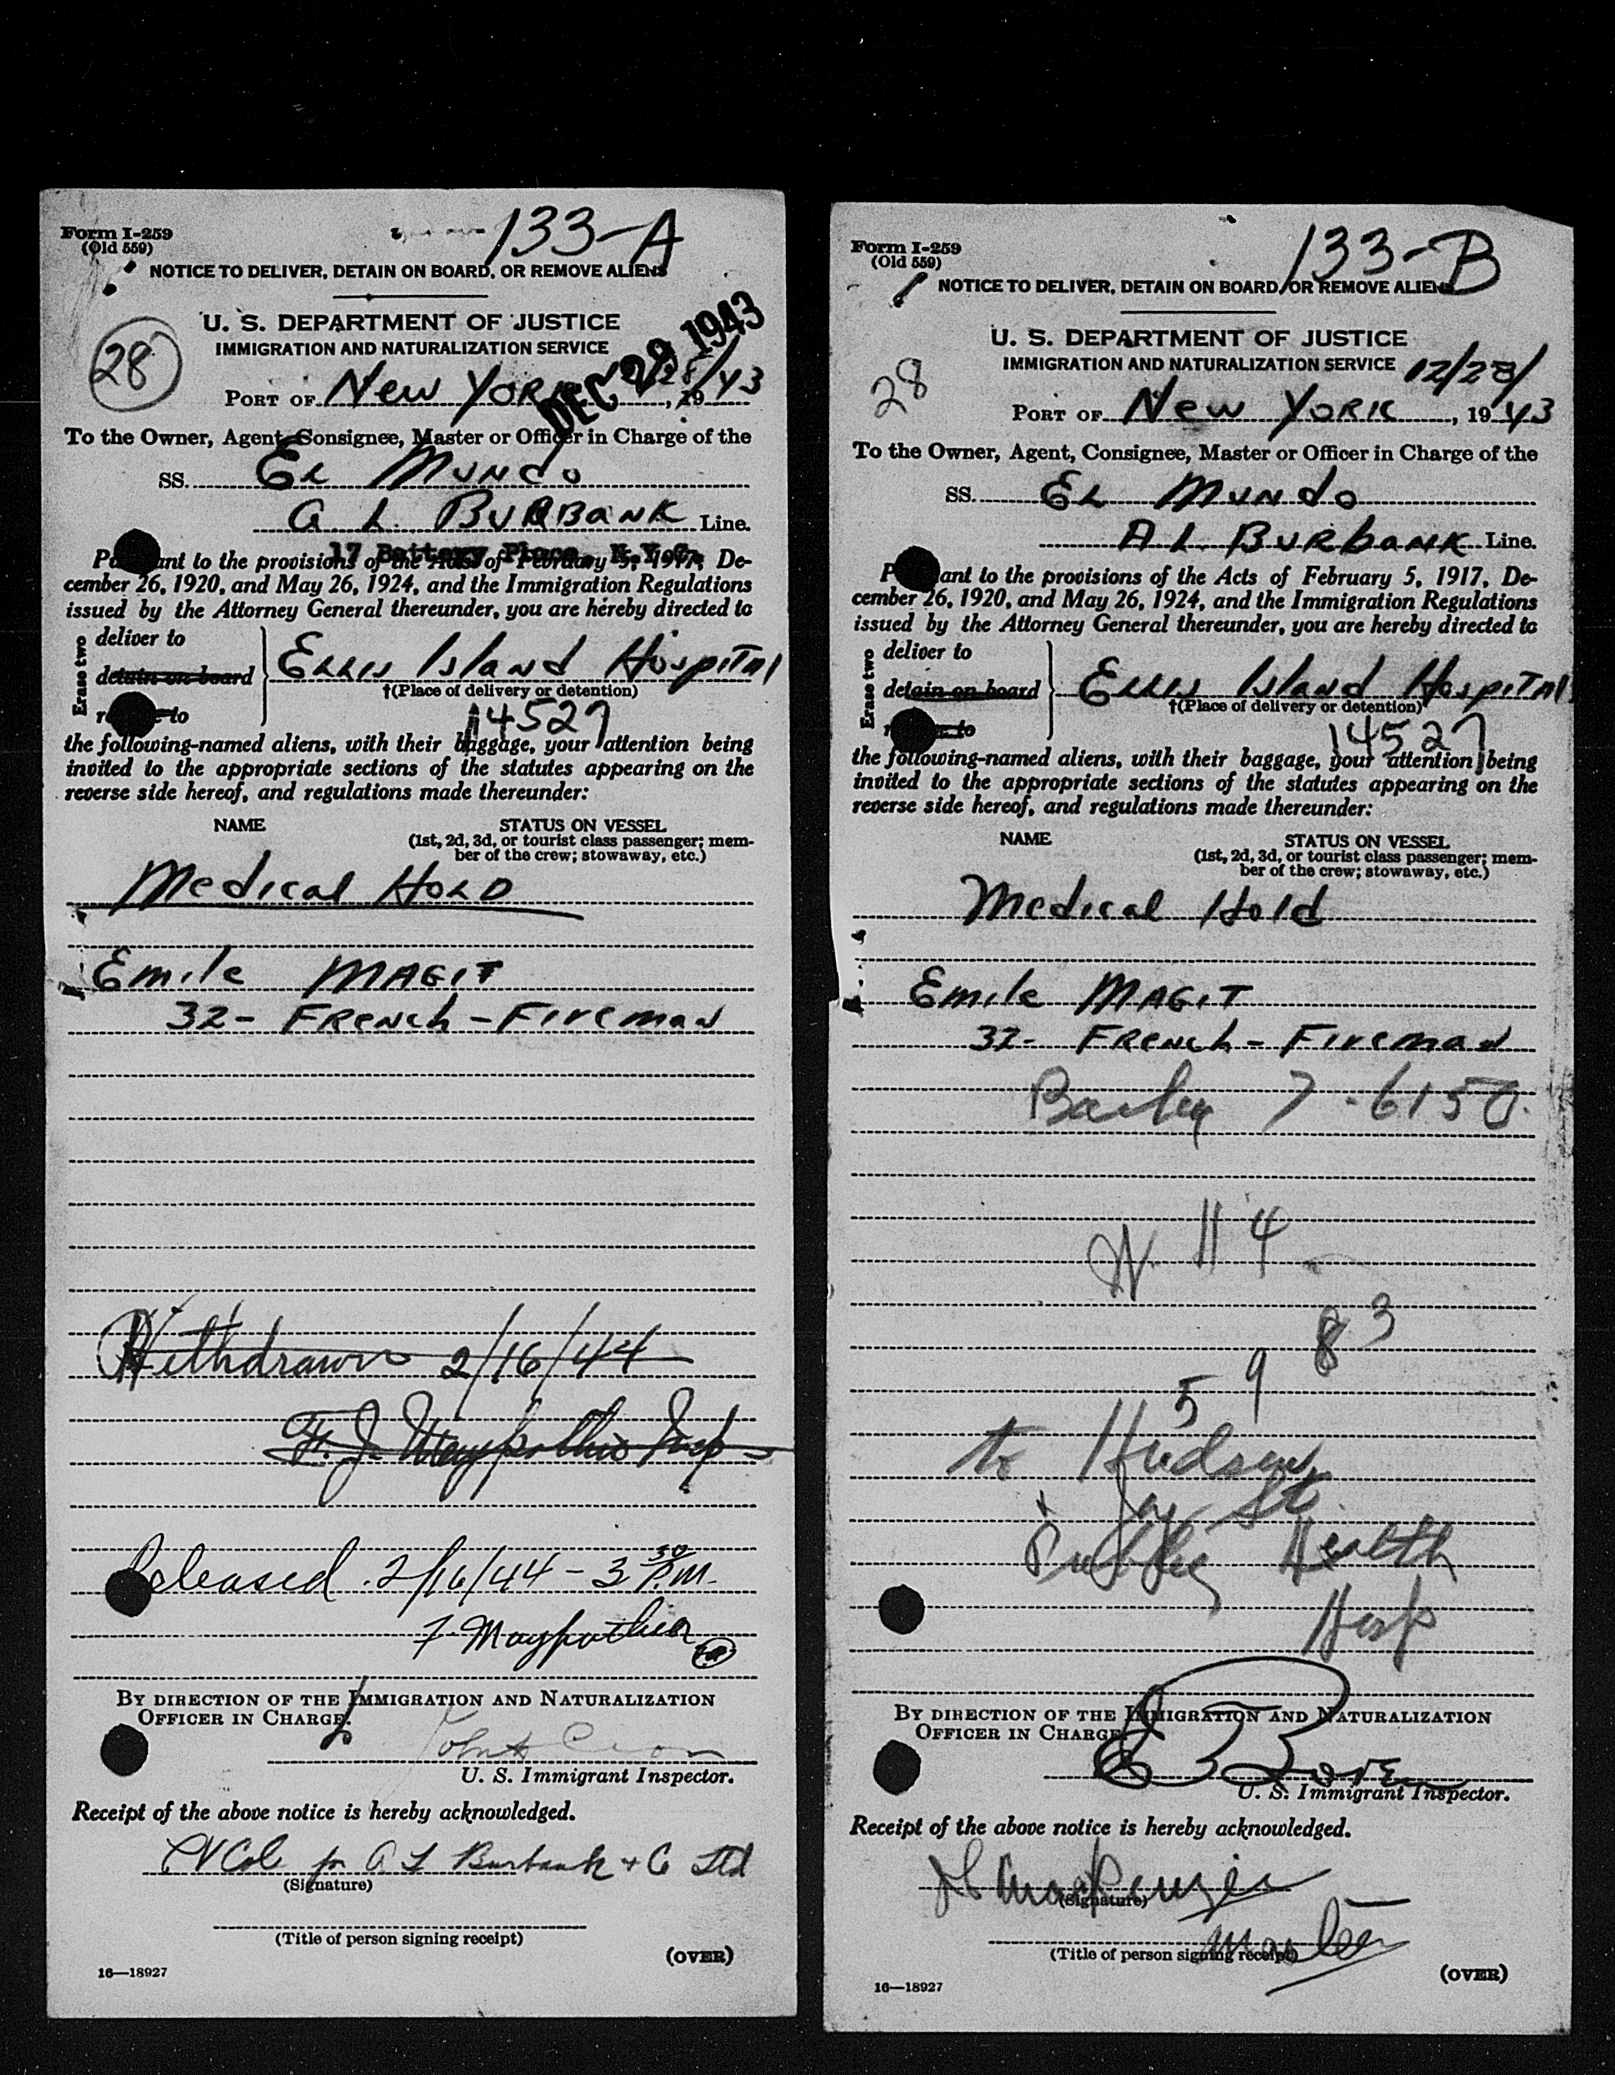 Form I-259
(Old 559)
133-A
NOTICE TO DELIVER, DETAIN ON BOARD, OR REMOVE ALIENS
U. S. DEPARTMENT OF JUSTICE
IMMIGRATION AND NATURALIZATION SERVICE
28
DEC 29 1943
PORT OF New York, 1943
To the Owner, Agent, Consignee, Master or Officer in Charge of the
SS. EL Mundo
A L. BURBANK Line.
17 Battery Place, N.Y.C.
Pursuant to the provisions of the Acts of February 5, 1917, De-
cember 26, 1920, and May 26, 1924, and the Immigration Regulations
issued by the Attorney General thereunder, you are hereby directed to
Erase two
deliver to
detain on board
remove to
Ellis Island Hospital
†(Place of delivery or detention)
14527
the following-named aliens, with their baggage, your attention being
invited to the appropriate sections of the statutes appearing on the
reverse side hereof, and regulations made thereunder:
NAME STATUS ON VESSEL
(1st, 2d, 3d, or tourist class passenger; mem-
ber of the crew; stowaway, etc.)
Medical HOLD
Emile MAGIT
32- FRENCH - FIREMAN
Withdrawn 2/16/44
F. J. Maypother Insp
Released 2/16/44 - 3 30 P.M.
F Maypother
BY DIRECTION OF THE IMMIGRATION AND NATURALIZATION
OFFICER IN CHARGE.
U. S. Immigrant Inspector.
Receipt of the above notice is hereby acknowledged.
Cole for A L Burbank + Co Ltd
(Signature)
(Title of person signing receipt)
(OVER)
16—18927
Form I-259
(Old 559)
133-B
NOTICE TO DELIVER, DETAIN ON BOARD, OR REMOVE ALIENS
U. S. DEPARTMENT OF JUSTICE
IMMIGRATION AND NATURALIZATION SERVICE
28
12/28/
PORT OF New York, 1943
To the Owner, Agent, Consignee, Master or Officer in Charge of the
SS. EL Mundo
A L. BURBANK Line.
Pursuant to the provisions of the Acts of February 5, 1917, De-
cember 26, 1920, and May 26, 1924, and the Immigration Regulations
issued by the Attorney General thereunder, you are hereby directed to
Erase two
deliver to
detain on board
remove to
Ellis Island Hospital
†(Place of delivery or detention)
14527
the following-named aliens, with their baggage, your attention being
invited to the appropriate sections of the statutes appearing on the
reverse side hereof, and regulations made thereunder:
NAME STATUS ON VESSEL
(1st, 2d, 3d, or tourist class passenger; mem-
ber of the crew; stowaway, etc.)
Medical Hold
Emile MAGIT
32- FRENCH - FIREMAN
Barclay 7-6150
W 114
83
5 9
to Hudson
Jay St
Public Health
Hosp
BY DIRECTION OF THE IMMIGRATION AND NATURALIZATION
OFFICER IN CHARGE.
U. S. Immigrant Inspector.
Receipt of the above notice is hereby acknowledged.
MacKenzie
(Signature)
Master
(Title of person signing receipt)
(OVER)
16—18927